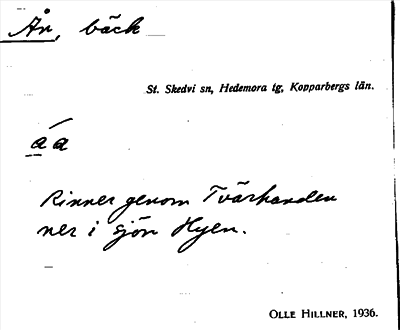 Ån, bäck
St. Skedvi sn, Hedemora tg, Kopparbergs län.
a a
Rinner genom Tvärhanden
ner i sjön Hyen.
OLLE HILLNER, 1936.